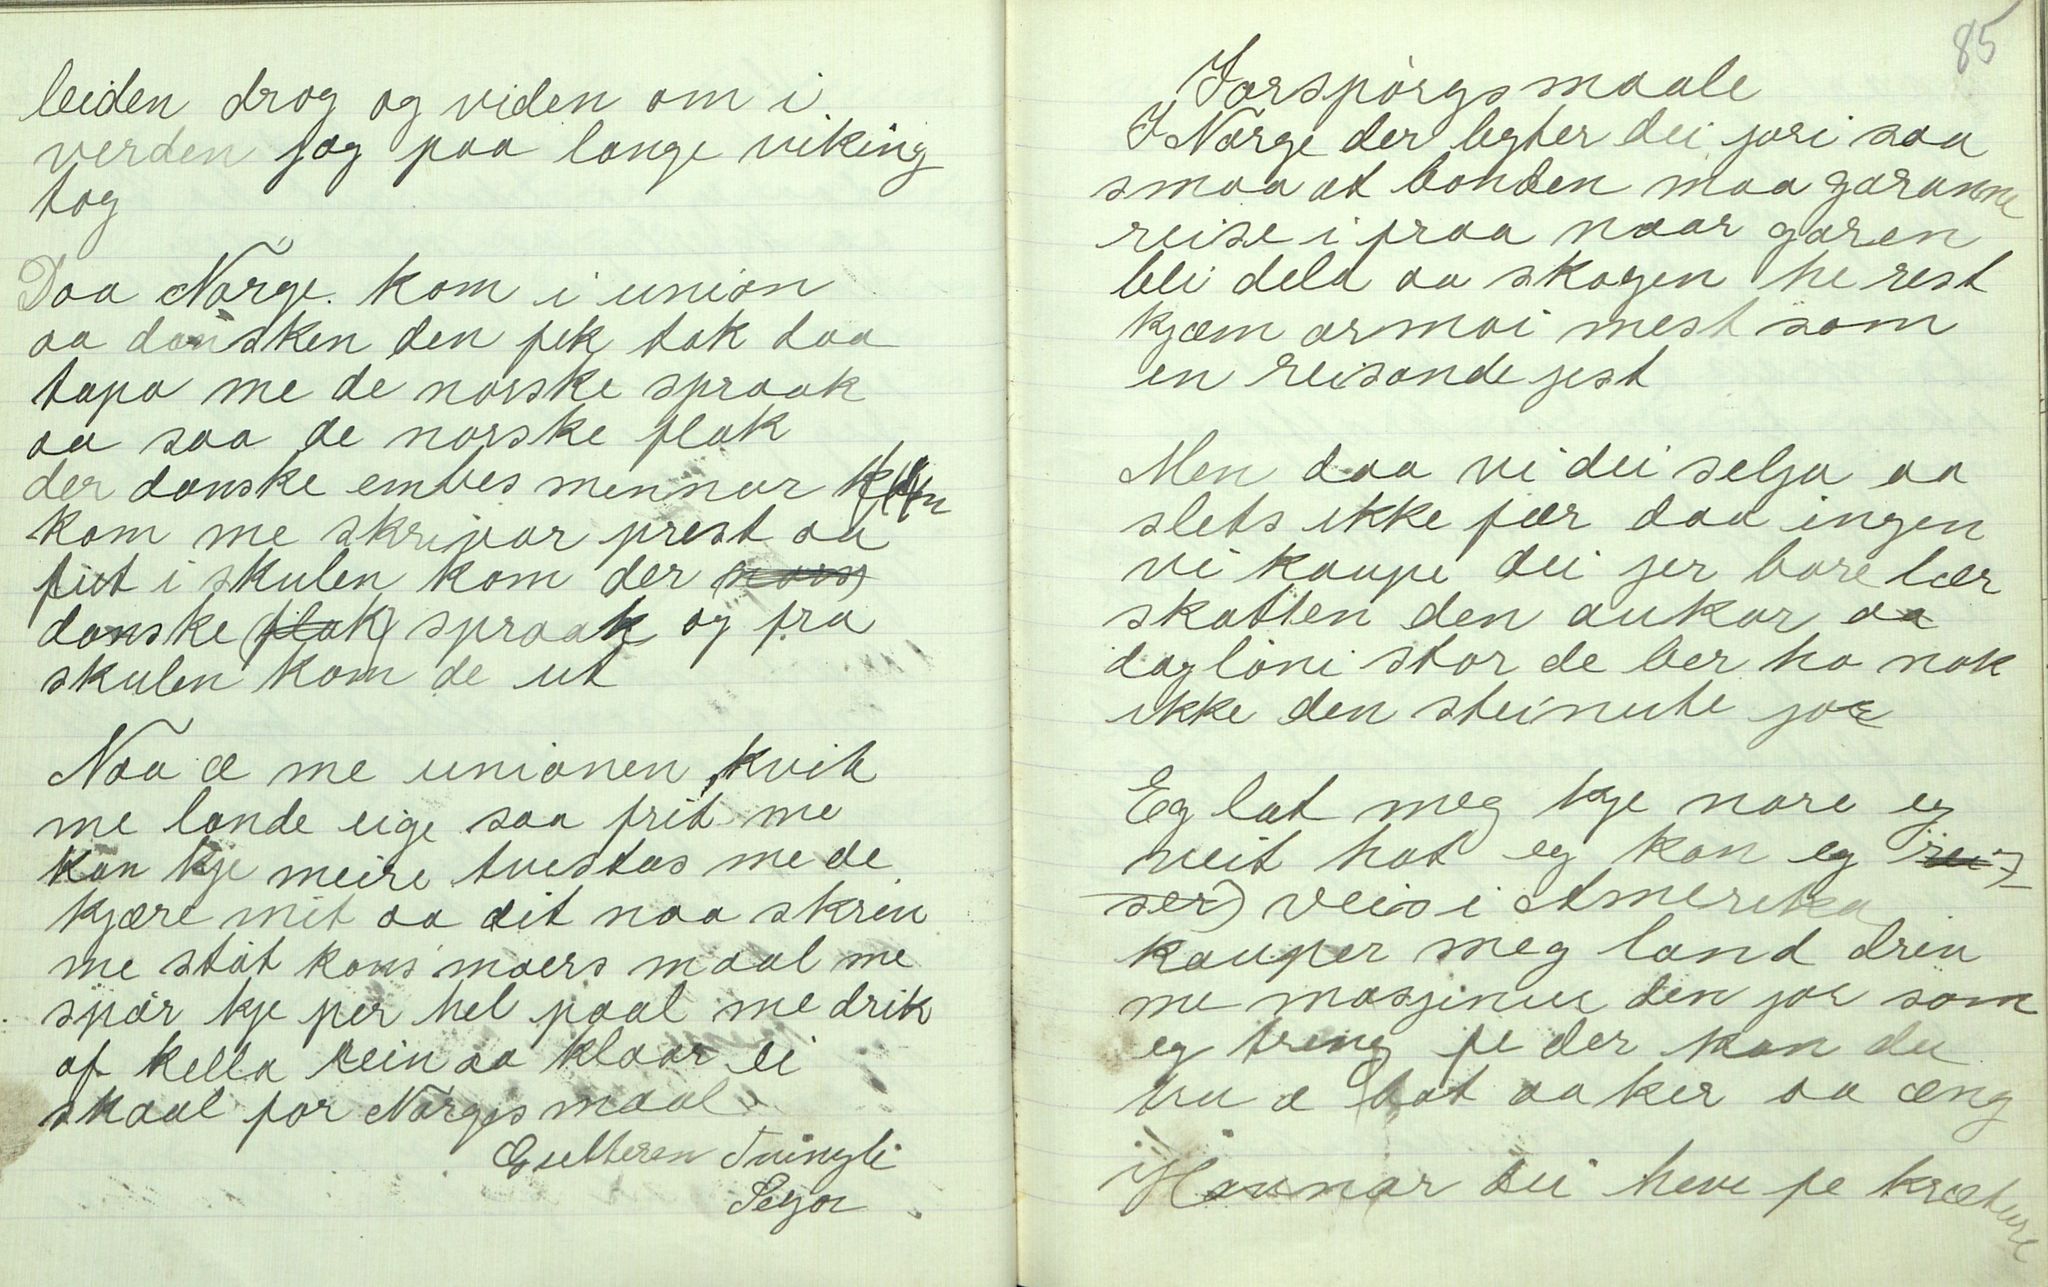 leiden drog og viden om i
verden jog paa lange viking
tog
Daa Norge. kom i union
aa dansken den fek tak daa
tapa me de norske spraak
aa saa de norske flak
der danske embes mennar
kom me skrivar prest aa
fut i skulen kom der (nors)
danske (flak) spraak og fra
skulen kom de ut
Naa æ me unionen kvit
me lande eige saa frit me
kan kje meire tvistas me de
kjære mit aa dit naa skrin
me støt kons moers maal me
spør kje per hel paal me drik
af kella rein aa klaar ei
skaal for Norges maal
Gutteren Tvingli
Seljor
85
Forspørgsmaale
I Norge der bgter dei jori saa
smaa at bonden maa garanne
reise i fraa naar garen
bli dela aa skogen he rest
kjæm armoi mest som
en reisande jest
Men daa vi dei selja aa
slets ikke fær daa ingen
vi kaupe dei jer bare lær
skatten den aukar aa
dagløni stor de ber ha nok
ikke den steinute jor
Eg lat meg kje nare eg
veit hot eg kan eg (rei-
ser) veis i Amerika
kauper meg land driu
me masjinue den jor som
eg treng fe der kan du
tru æ bat aaker aa æng
Haunar dei heve fe kræture